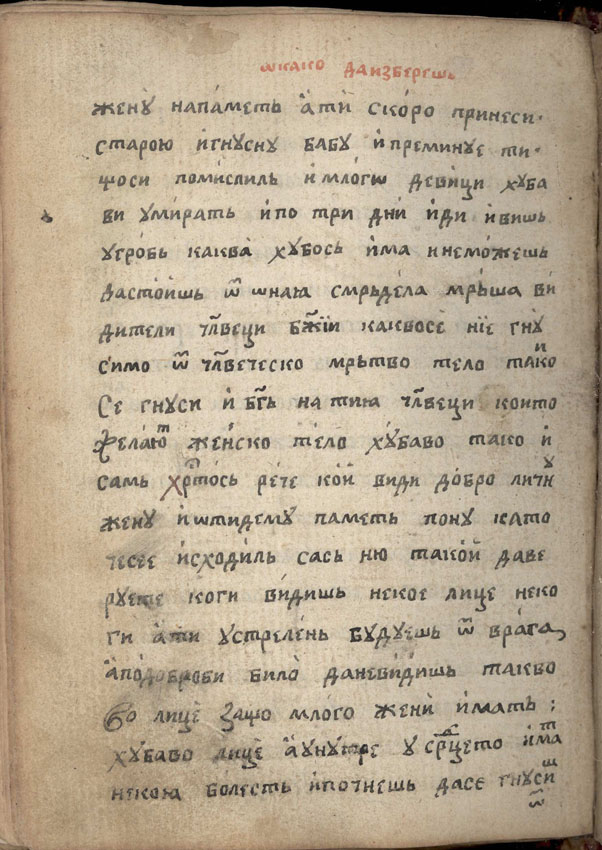 ѡкако даизберешь
женꙋ̀ напа́меть а҆тѝ ско́ро принеси·
старою и҆гнꙋсну бабꙋ и҆преминꙋе ти·
ѱоси помѝслиль и҆мло́гѡ деви́ци хꙋба
ви ꙋми́рать и҆по трѝ дни́ и҆дѝ и҆ви́шь
ꙋгро́бь каквà хꙋ́бось и҆ма инемо́жешь
дасто́ишь ѿ ѡнаꙗ смрьде́ла мрь́ша ви́
дители чл҃веци бж҃їи каквосѐ ні́е гнꙋ́
симо ѿ чл҃веческо мрь́тво тело тако и
се гнꙋси и҆ бг҃ь на тиꙗ чл҃веци които
желаю́ть же́нско те́ло хꙋ́баво тако и҆
самь хрⷭ҇то́сь ре́че ко́й види до́бро личнꙋ
женꙋ и҆ѿтидемꙋ памєть пону като
чесее и҆сходи́ль сась ню тако́й даве
рꙋете коги ви́дишь некое лице неко
ги а҆ти ꙋстреле́нь бꙋ́дꙋешь ѿ врага
а҆подоброби било̀ даневи́дишь такво
во лицѐ защо мло́го женѝ и҆мать ;
хꙋ́баво лицѐ а҆ꙋнꙋтре ꙋ срⷣцето и҆мать
некоꙗ бо́лесть и҆почнешь дасе гнꙋсишь
ѿ